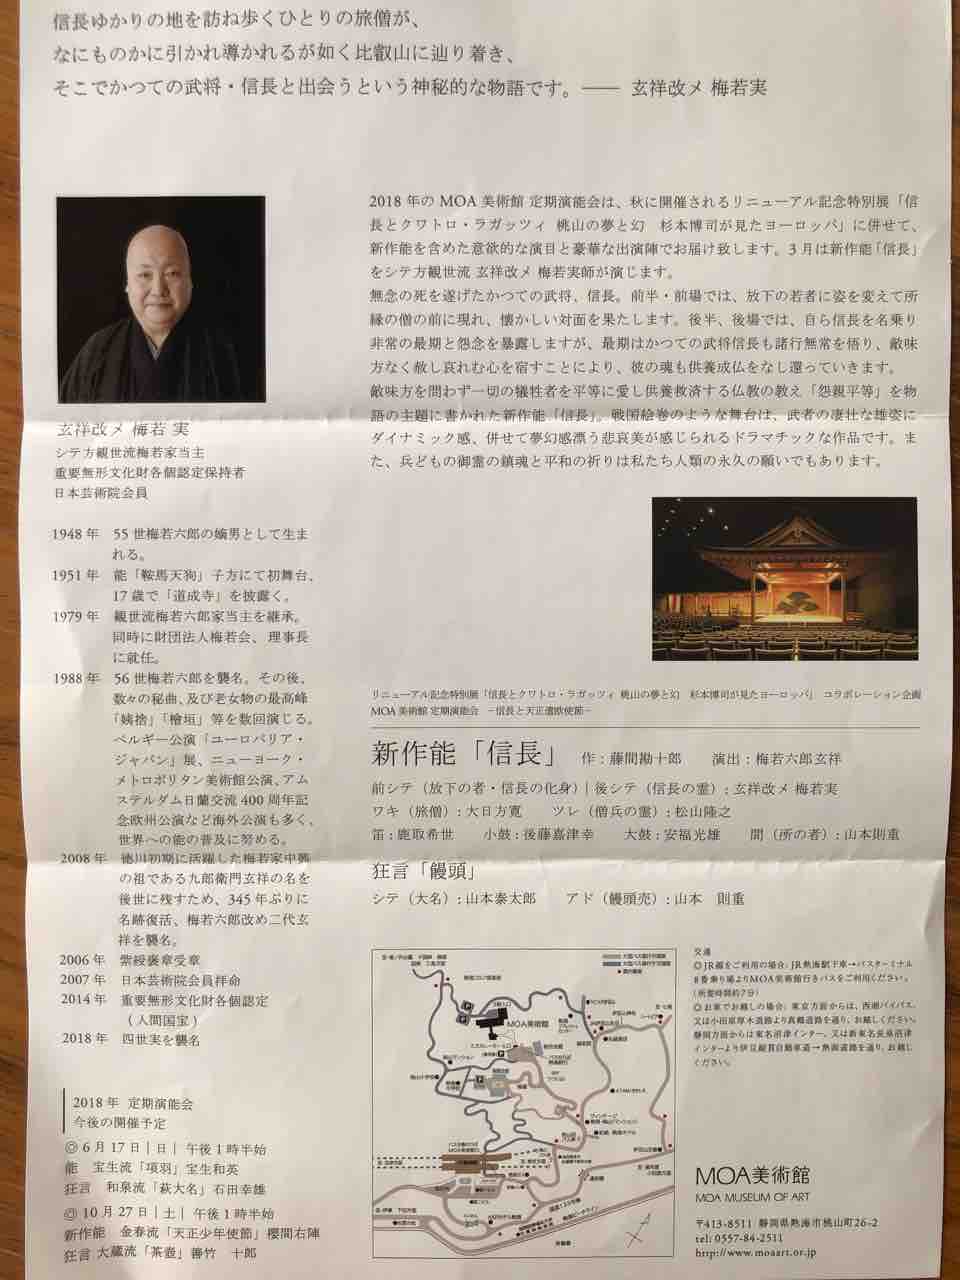 信長ゆかりの地を訪ね歩くひとりの旅僧が、
なにものかに引かれ導かれるが如く比叡山に辿り着き、
そこでかつての武将・信長と出会うという神秘的な物語です。—— 玄祥改メ 梅若実
2018 年の MOA 美術館 定期演能会は、秋に開催されるリニューアル記念特別展「信
長とクワトロ・ラガッツィ 桃山の夢と幻 杉本博司が見たヨーロッパ」に併せて、
新作能を含めた意欲的な演目と豪華な出演陣でお届け致します。3 月は新作能「信長」
をシテ方観世流 玄祥改メ 梅若実師が演じます。
無念の死を遂げたかつての武将、信長。前半・前場では、放下の若者に姿を変えて所
縁の僧の前に現れ、懐かしい対面を果たします。後半、後場では、自ら信長を名乗り
非常の最期と怨念を暴露しますが、最期はかつての武将信長も諸行無常を悟り、敵味
方なく赦し哀れむ心を宿すことにより、彼の魂も供養成仏をなし還っていきます。
敵味方を問わず一切の犠牲者を平等に愛し供養救済する仏教の教え「怨親平等」を物
語の主題に書かれた新作能「信長」。戦国絵巻のような舞台は、武者の凄壮な雄姿に
ダイナミック感、併せて夢幻感漂う悲哀美が感じられるドラマチックな作品です。ま
た、兵どもの御霊の鎮魂と平和の祈りは私たち人類の永久の願いでもあります。
玄祥改メ 梅若 実
シテ方観世流梅若家当主
重要無形文化財各個認定保持者
日本芸術院会員
1948 年 55 世梅若六郎の嫡男として生ま
れる。
1951 年 能「鞍馬天狗」子方にて初舞台、
17 歳で「道成寺」を披露く。
1979 年 観世流梅若六郎家当主を継承。
同時に財団法人梅若会、理事長
に就任。
1988 年 56 世梅若六郎を襲名。その後、
数々の秘曲、及び老女物の最高峰
「姨捨」「檜垣」等を数回演じる。
ベルギー公演「ユーロパリア・
ジャパン」展、ニューヨーク・
メトロポリタン美術館公演、アム
ステルダム日蘭交流 400 周年記
念欧州公演など海外公演も多く、
世界への能の普及に努める。
2008 年 徳川初期に活躍した梅若家中興
の祖である九郎衛門玄祥の名を
後世に残すため、345 年ぶりに
名跡復活、梅若六郎改め二代玄
祥を襲名。
2006 年 紫綬褒章受章
2007 年 日本芸術院会員拝命
2014 年 重要無形文化財各個認定
(人間国宝)
2018 年 四世実を襲名
2018 年 定期演能会
今後の開催予定
◎ 6 月 17 日｜日｜午後 1 時半始
能 宝生流「項羽」宝生和英
狂言 和泉流「萩大名」石田幸雄
◎ 10 月 27 日｜土｜午後 1 時半始
新作能 金春流「天正少年使節」櫻間右陣
狂言 大蔵流「茶壺」善竹 十郎
リニューアル記念特別展「信長とクワトロ・ラガッツィ 桃山の夢と幻 杉本博司が見たヨーロッパ」 コラボレーション企画
MOA 美術館 定期演能会 −信長と天正遣欧使節−
新作能「信長」 作：藤間勘十郎 演出：梅若六郎玄祥
前シテ（放下の者・信長の化身）｜後シテ（信長の霊）：玄祥改メ 梅若実
ワキ（旅僧）：大日方寛 ツレ（僧兵の霊）：松山隆之
笛：鹿取希世 小鼓：後藤嘉津幸 大鼓：安福光雄 間（所の者）：山本則重
狂言「饅頭」
シテ（大名）：山本泰太郎 アド（饅頭売）：山本 則重
MOA美術館
交通
◎JR線をご利用の場合：JR熱海駅下車→バスターミナル
8番乗り場よりMOA美術館行きバスをご利用ください。
(所要時間約7分)
◎お車でお越しの場合：東京方面からは、西湘バイパス、
又は小田原厚木道路より真鶴道路を通り、お越しください。
静岡方面からは東名沼津インター、又は新東名長泉沼津
インターより伊豆縦貫自動車道→熱函道路を通り、お越し
ください。
MOA美術館
MOA MUSEUM OF ART
〒413-8511 静岡県熱海市桃山町26-2
tel: 0557-84-2511
http://www.moaart.or.jp